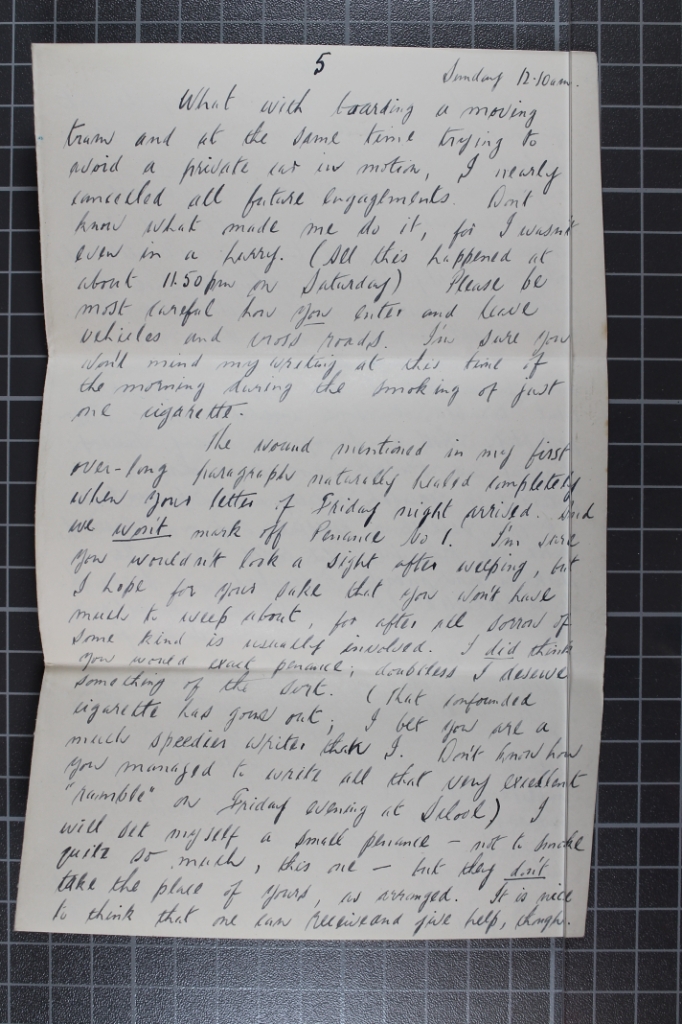 5
Sunday 12.10am.
What with boarding a moving
tram and at the same time trying to
avoid a private car in motion, I nearly
cancelled all future engagements. Don't
know what made me do it, for I wasn't
even in a hurry. (All this happened at
about 11.50pm on Saturday) Please be
most careful how you enter and leave
vehicles and cross roads. I'm sure you
won't mind my writing at this time of
the morning during the smoking of just
one cigarette.
The wound mentioned in my first
over-long paragraph naturally healed completely
when your letter of Friday night arrived. And
we won't mark off Penance No 1. I'm sure
you wouldn't look a sight after weeping, but
I hope for your sake that you won't have
much to weep about, for after all sorrow of
some kind is usually involved. I did think
you would exact penance; doubtless I deserve
something of the sort. (That confounded
cigarette has gone out; I bet you are a
much speedier writer than I. Don't know how
you managed to write all that very excellent
"ramble" on Friday evening at School) I
will set myself a small penance – not to smoke
quite so much, this one – but they don't
take the place of yours, as arranged. It is nice
to think that one can receive and give help, though.